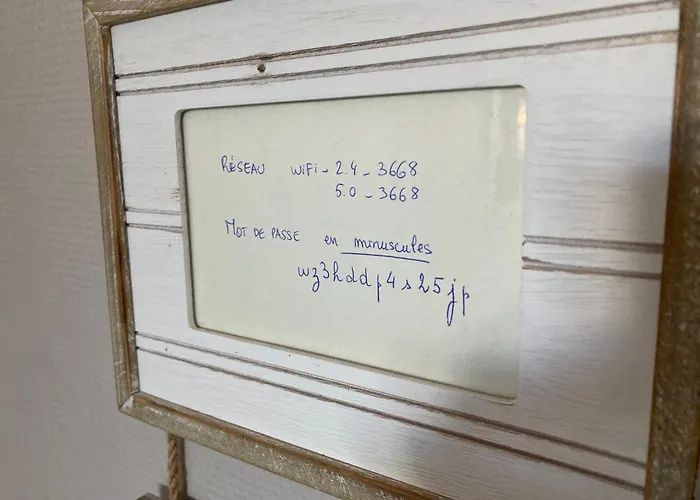 RÉSEAU WIFI - 2.4 - 3668
5.0 - 3668
MOT DE PASSE en minuscules
wz3hddp4s25jp